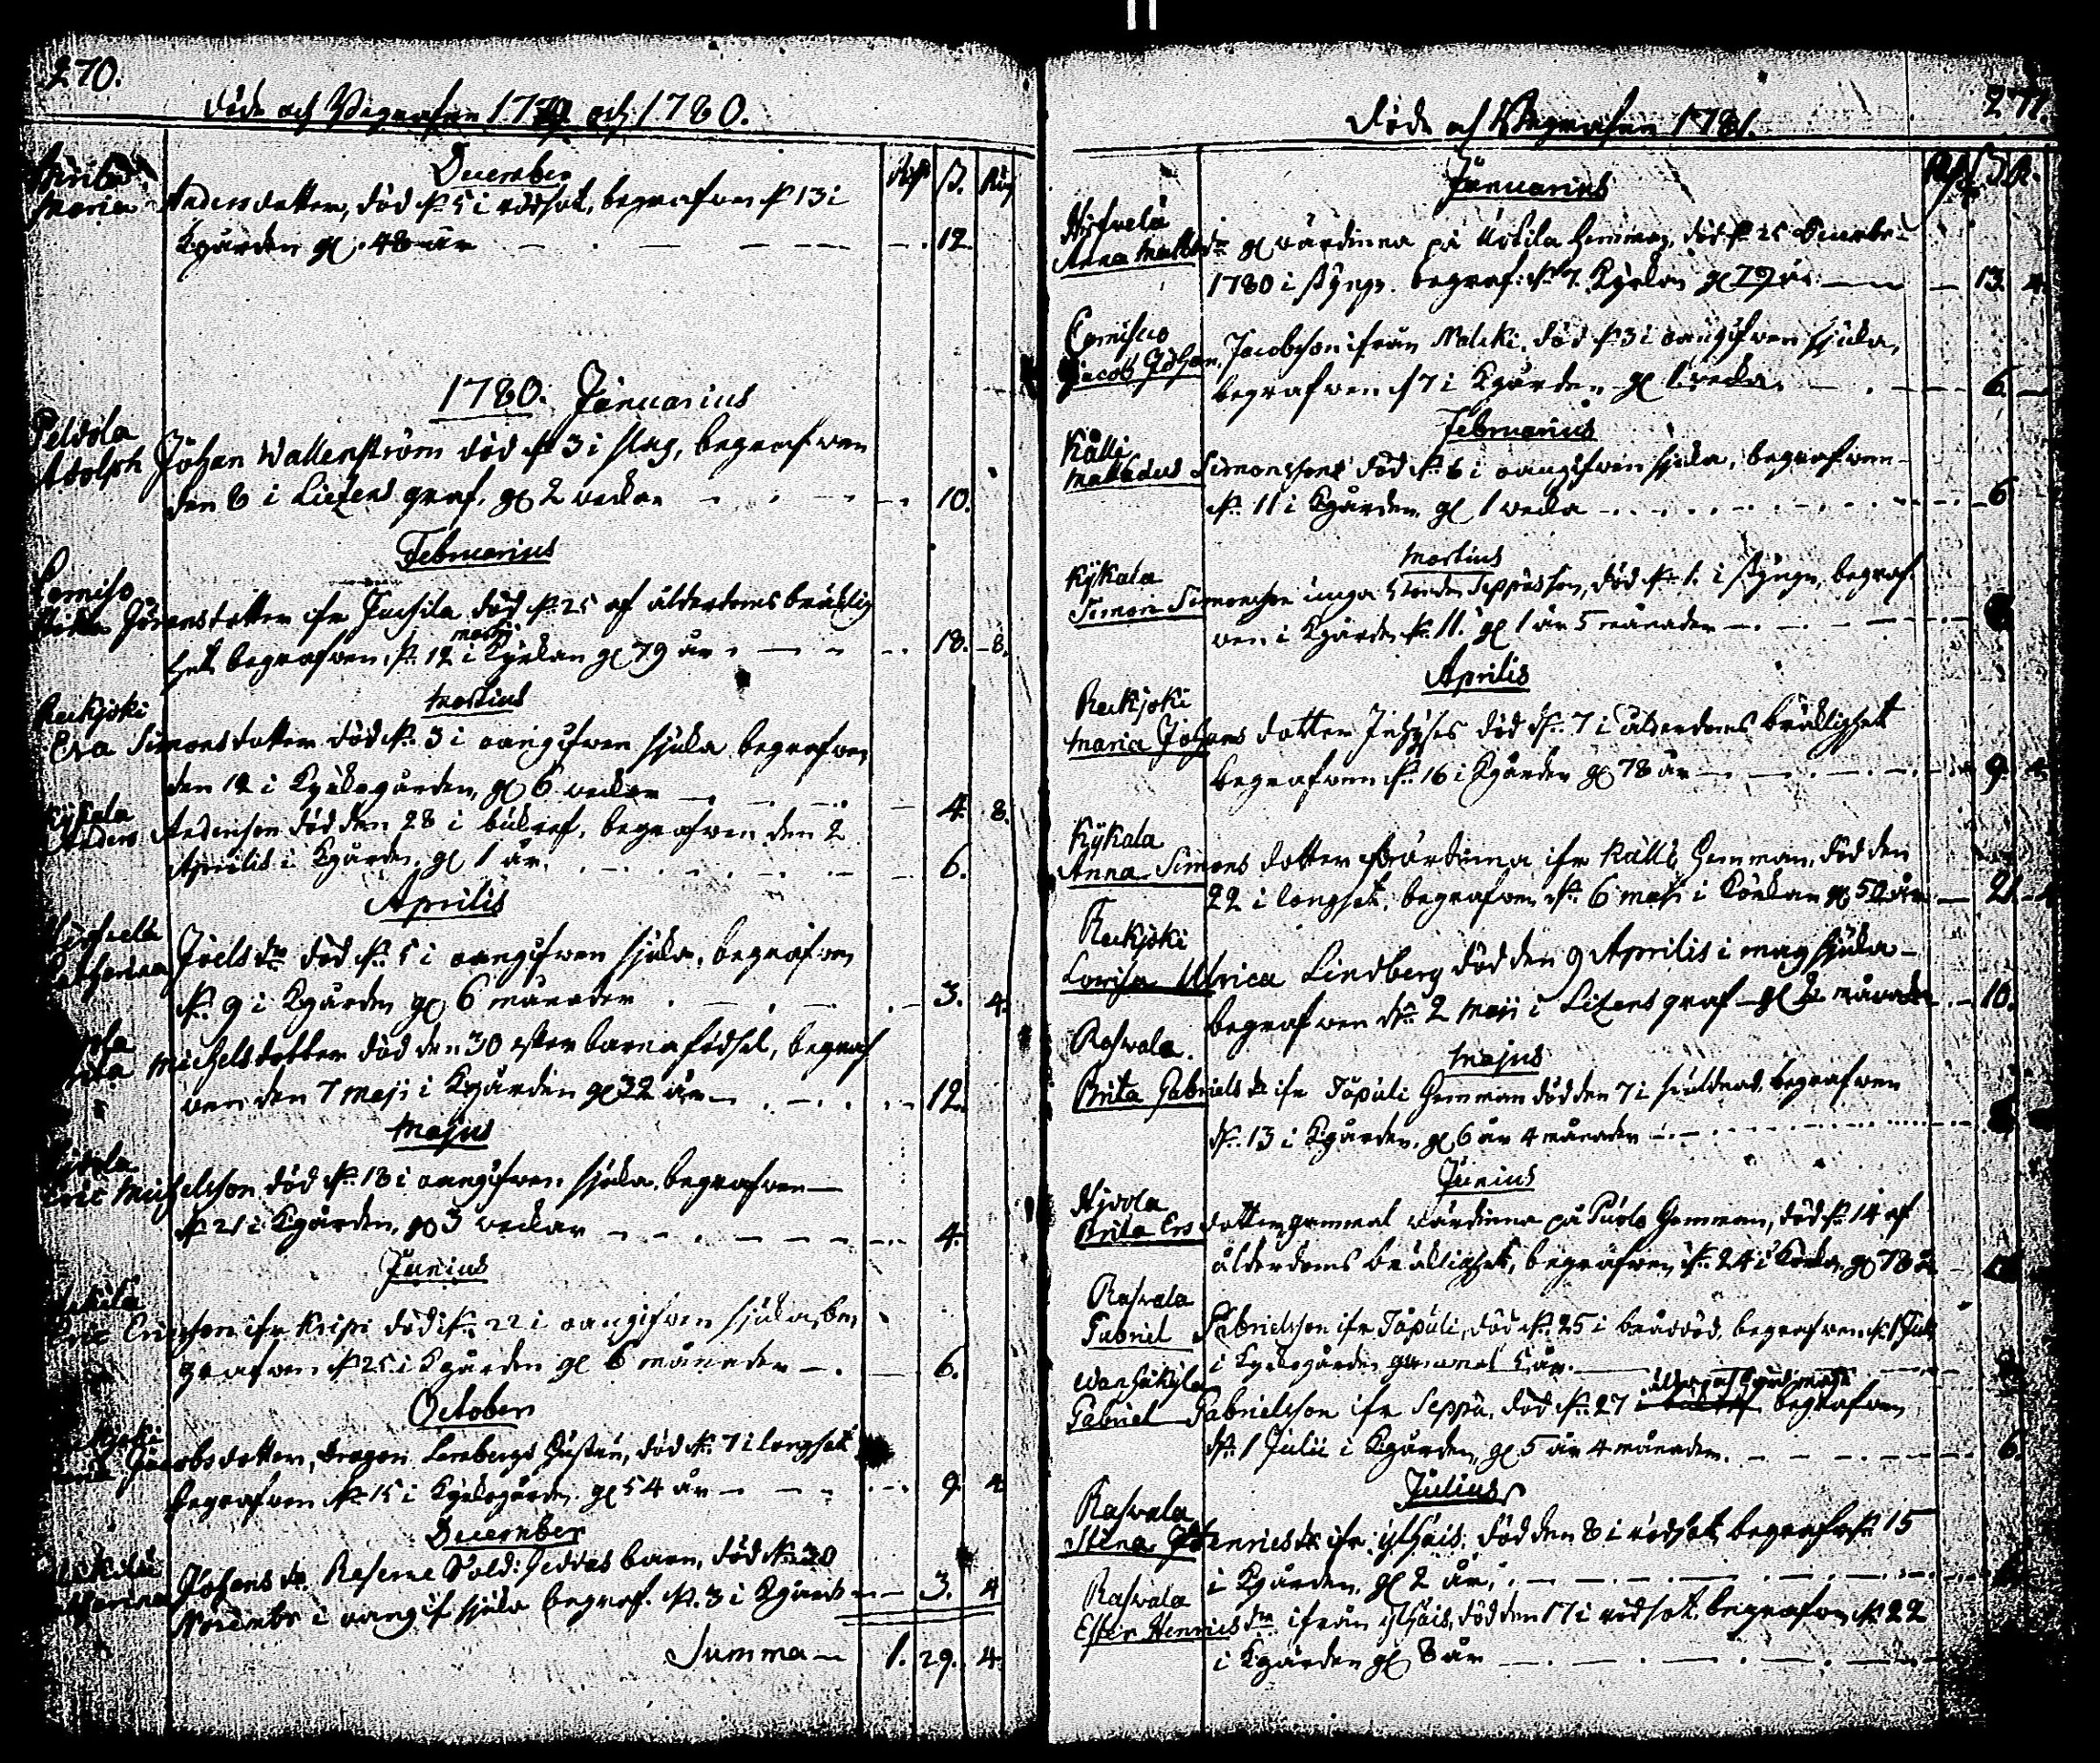 270.
Döde och Begrafne 1779 och 1780.
December
Maria Andersdotter, död d. 5 i rödsot, begrafwen d 13 i
Kgården gl. 48 år 12
1780. Januarius
Peldola
Adolph Johan Wallenström död d 3 i slag, begrafwen
den 8 i Lietzens graf, gl 2 weckor 10.
Februarius
Jöransdotter ifr Juhsila död d. 25 af ålderdoms bräcklig
het begrafwen d. 12 martii i Kyrkan gl 79 år 18. 8.
Martius
Reckjoki
Eva Simonsdotter död d. 3 i oangifwen sjuka begrafwen
den 12 i Kyrkogården, gl 6 weckor 4. 8.
Kykala
Anders Andersson död den 28 i bukref, begrafwen den 2
Aprilis i Kgården, gl 1 år. 6.
Aprilis
Joelsdr död d. 5 i oangifwen sjuka, begrafwen
d. 9 i Kgården gl 6 månader 3. 4.
Michelsdotter död den 30 efter barnafödsel, begraf
wen den 7 Maji i Kgården gl 32 år 12.
Majus
Eric Michelsson död d. 18 i oangifwen sjuka, begrafwen
d. 21 i Kgården, gl 3 weckor 4.
Junius
Eric Ericsson ifr död d. 22 i oangifwen sjuka, be
grafwen d 25 i Kgården gl 6 månader 6.
October
Jacobsdotter, Dragon Hustru, död d. 7 i lungsot
begrafwen d. 15 i Kyrkogården gl 54 år 9. 4.
December
Johansdr. Reserve Sold: barn, död d. 30
Novembr i oangif sjuka begraf. d. 3 i Kgården 3. 4
Summa 1. 29. 4.
271.
Döde och Begrafne 1781.
Januarius
Hirfvelä
Anna Mattsdr gl wärdinna på Uotila hemman, död d. 25 Decembr
1780 i styng. begraf: d. 7. Kyrkan gl 79 år 13. 4.
Jacob Johan Jacobsson ifrån död d. 3 i oangifwen sjuka,
begrafwen d 7 i Kgården gl 1 wecka. 6.
Februarius
Källi
Simonsson död d. 6 i oangifwen sjuka, begrafwen
d. 11 i Kgården gl 1 wecka 6
Martius
Kykala
Simon Simonsson unga son, död d. 1. i styng, begraf
wen i Kgården d. 11. gl 1 år 5 månader
Aprilis
Reckjoki
Maria Johansdotter död d. 7 i ålderdoms bräcklighett
begrafwen d. 16 i Kgården gl 78 år 9. 4.
Kykala
Anna Simonsdotter wärdinna ifr Källi Hemman, död den
22 i lungsot, begrafwen d. 6 maji i Körkan gl 50 år 21.
Reckjoki
Lovisa Ulrica Lindberg död den 9 Aprilis i magsjuka
begrafwen d. 2 Maji i Litzens graf gl månader 10.
Raswala
Majus
Brita Gabrielsdr ifr Töpuli Hemman död den 7 i begrafwen
d. 13 i Kgården, gl 6 år 4 månader
Junius
Brita Ersdotter, gammal wärdinna på Hemman, död d. 14 af
ålderdoms bräcklighet, begrafwen d. 24 i Körka gl 78 år
Raswala
Gabriel Gabrielsson ifr Töpuli, död d. 25 i bråddöd, begrafwen d. 1 Jul
i Kyrkogården gammal 5 år.
Wanhakyla
Gabriel Gabrielsson ifr Seppä, död d. 27 begrafwen
d. 1 Julii i Kgården, gl 5 år 4 månader. 6.
Julius
Raswala
Stina Henricsdr ifr död den 8 i rödsot, begrafw d. 15
i Kgården, gl 2 år.
Raswala
Ester Henricsdr ifrån död den 17 i rödsot, begrafwen d. 22
i Kgården gl 8 år